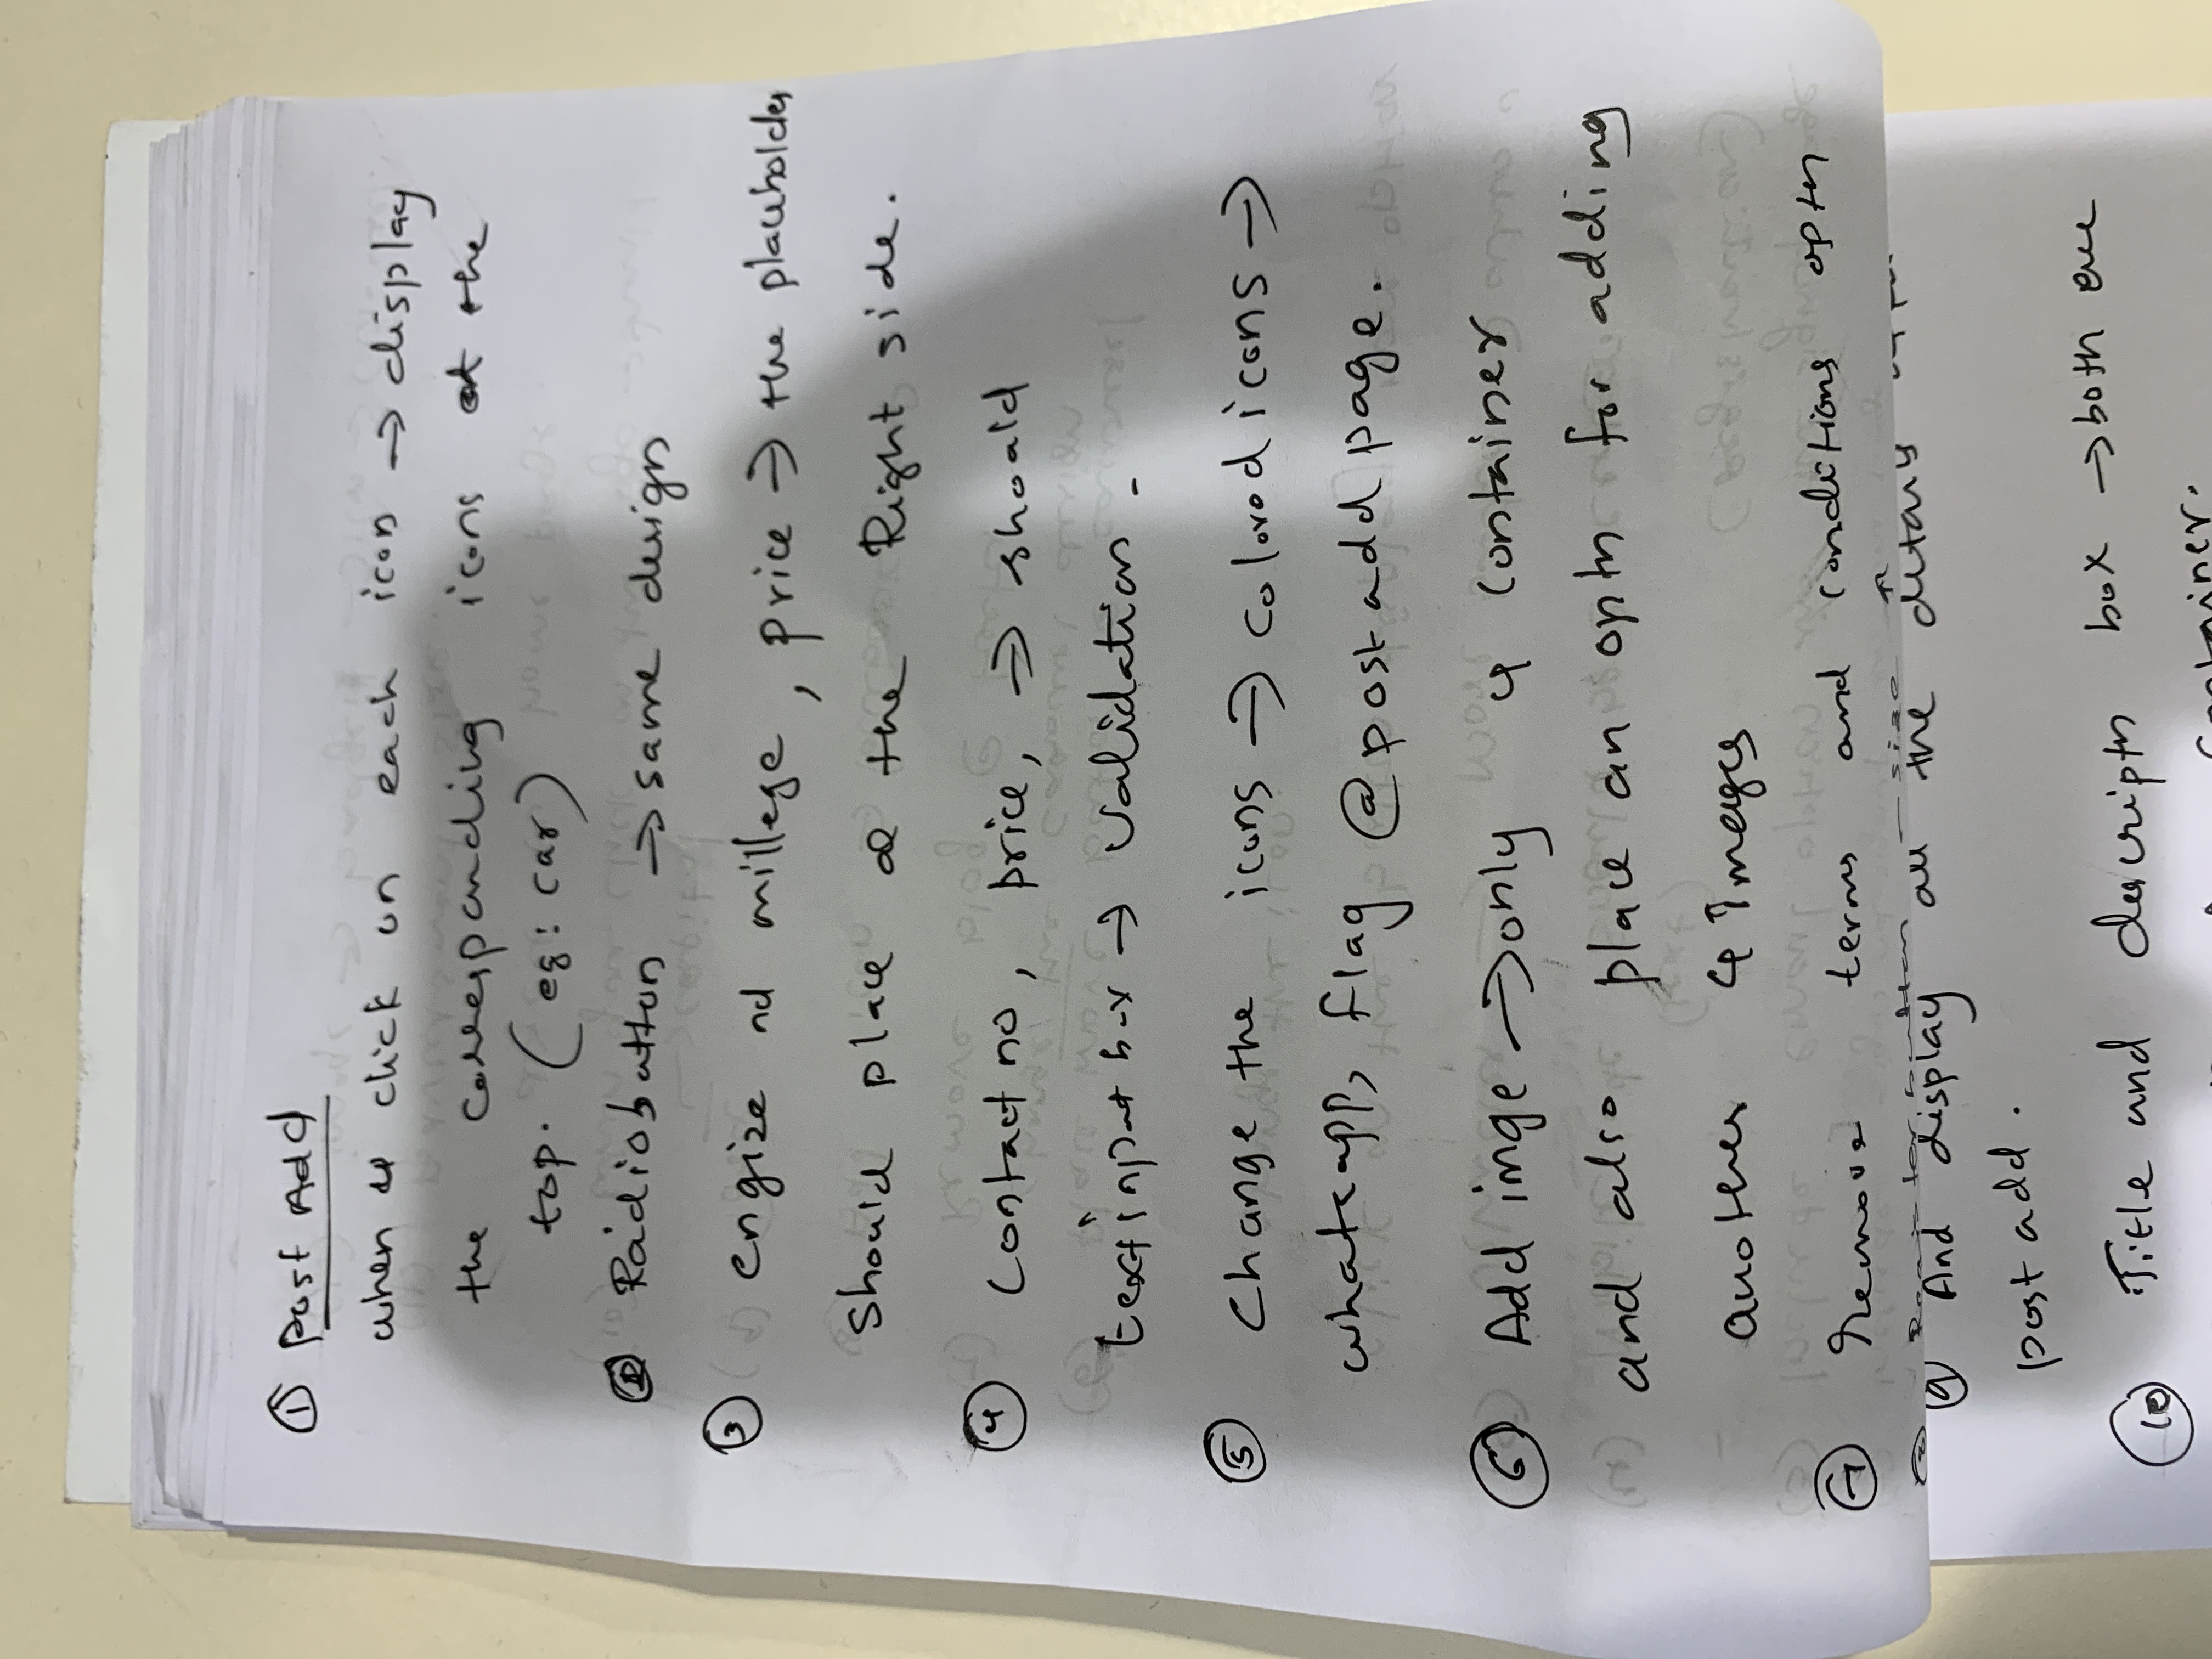 ① Post Add
when click on each icon → display
the corresponding icons at the
top. (eg: car)
② Radiobutton → same design
③ engize nd millege, price → the placeholder
should place @ the Right side.
④ Contact no, price, → should
text input box → validation.
⑤ Change the icons → colored icons →
whatsapp, flag @ post add page.
⑥ Add imge → only 4 container
and also place an optn for adding
another 4 Images
⑦ Remove terms and conditions optn
button - size
⑨ And display all the details
post add.
⑩ Title and descriptn box → both are
container.